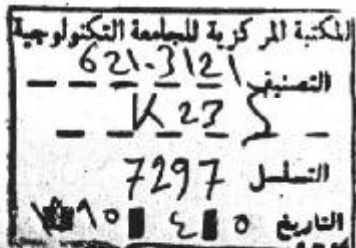 المكتبة المركزية للجامعة التكنولوجية
التصنيف 621.3121
K 23
التسلسل 7297
التاريخ ٥ ٤